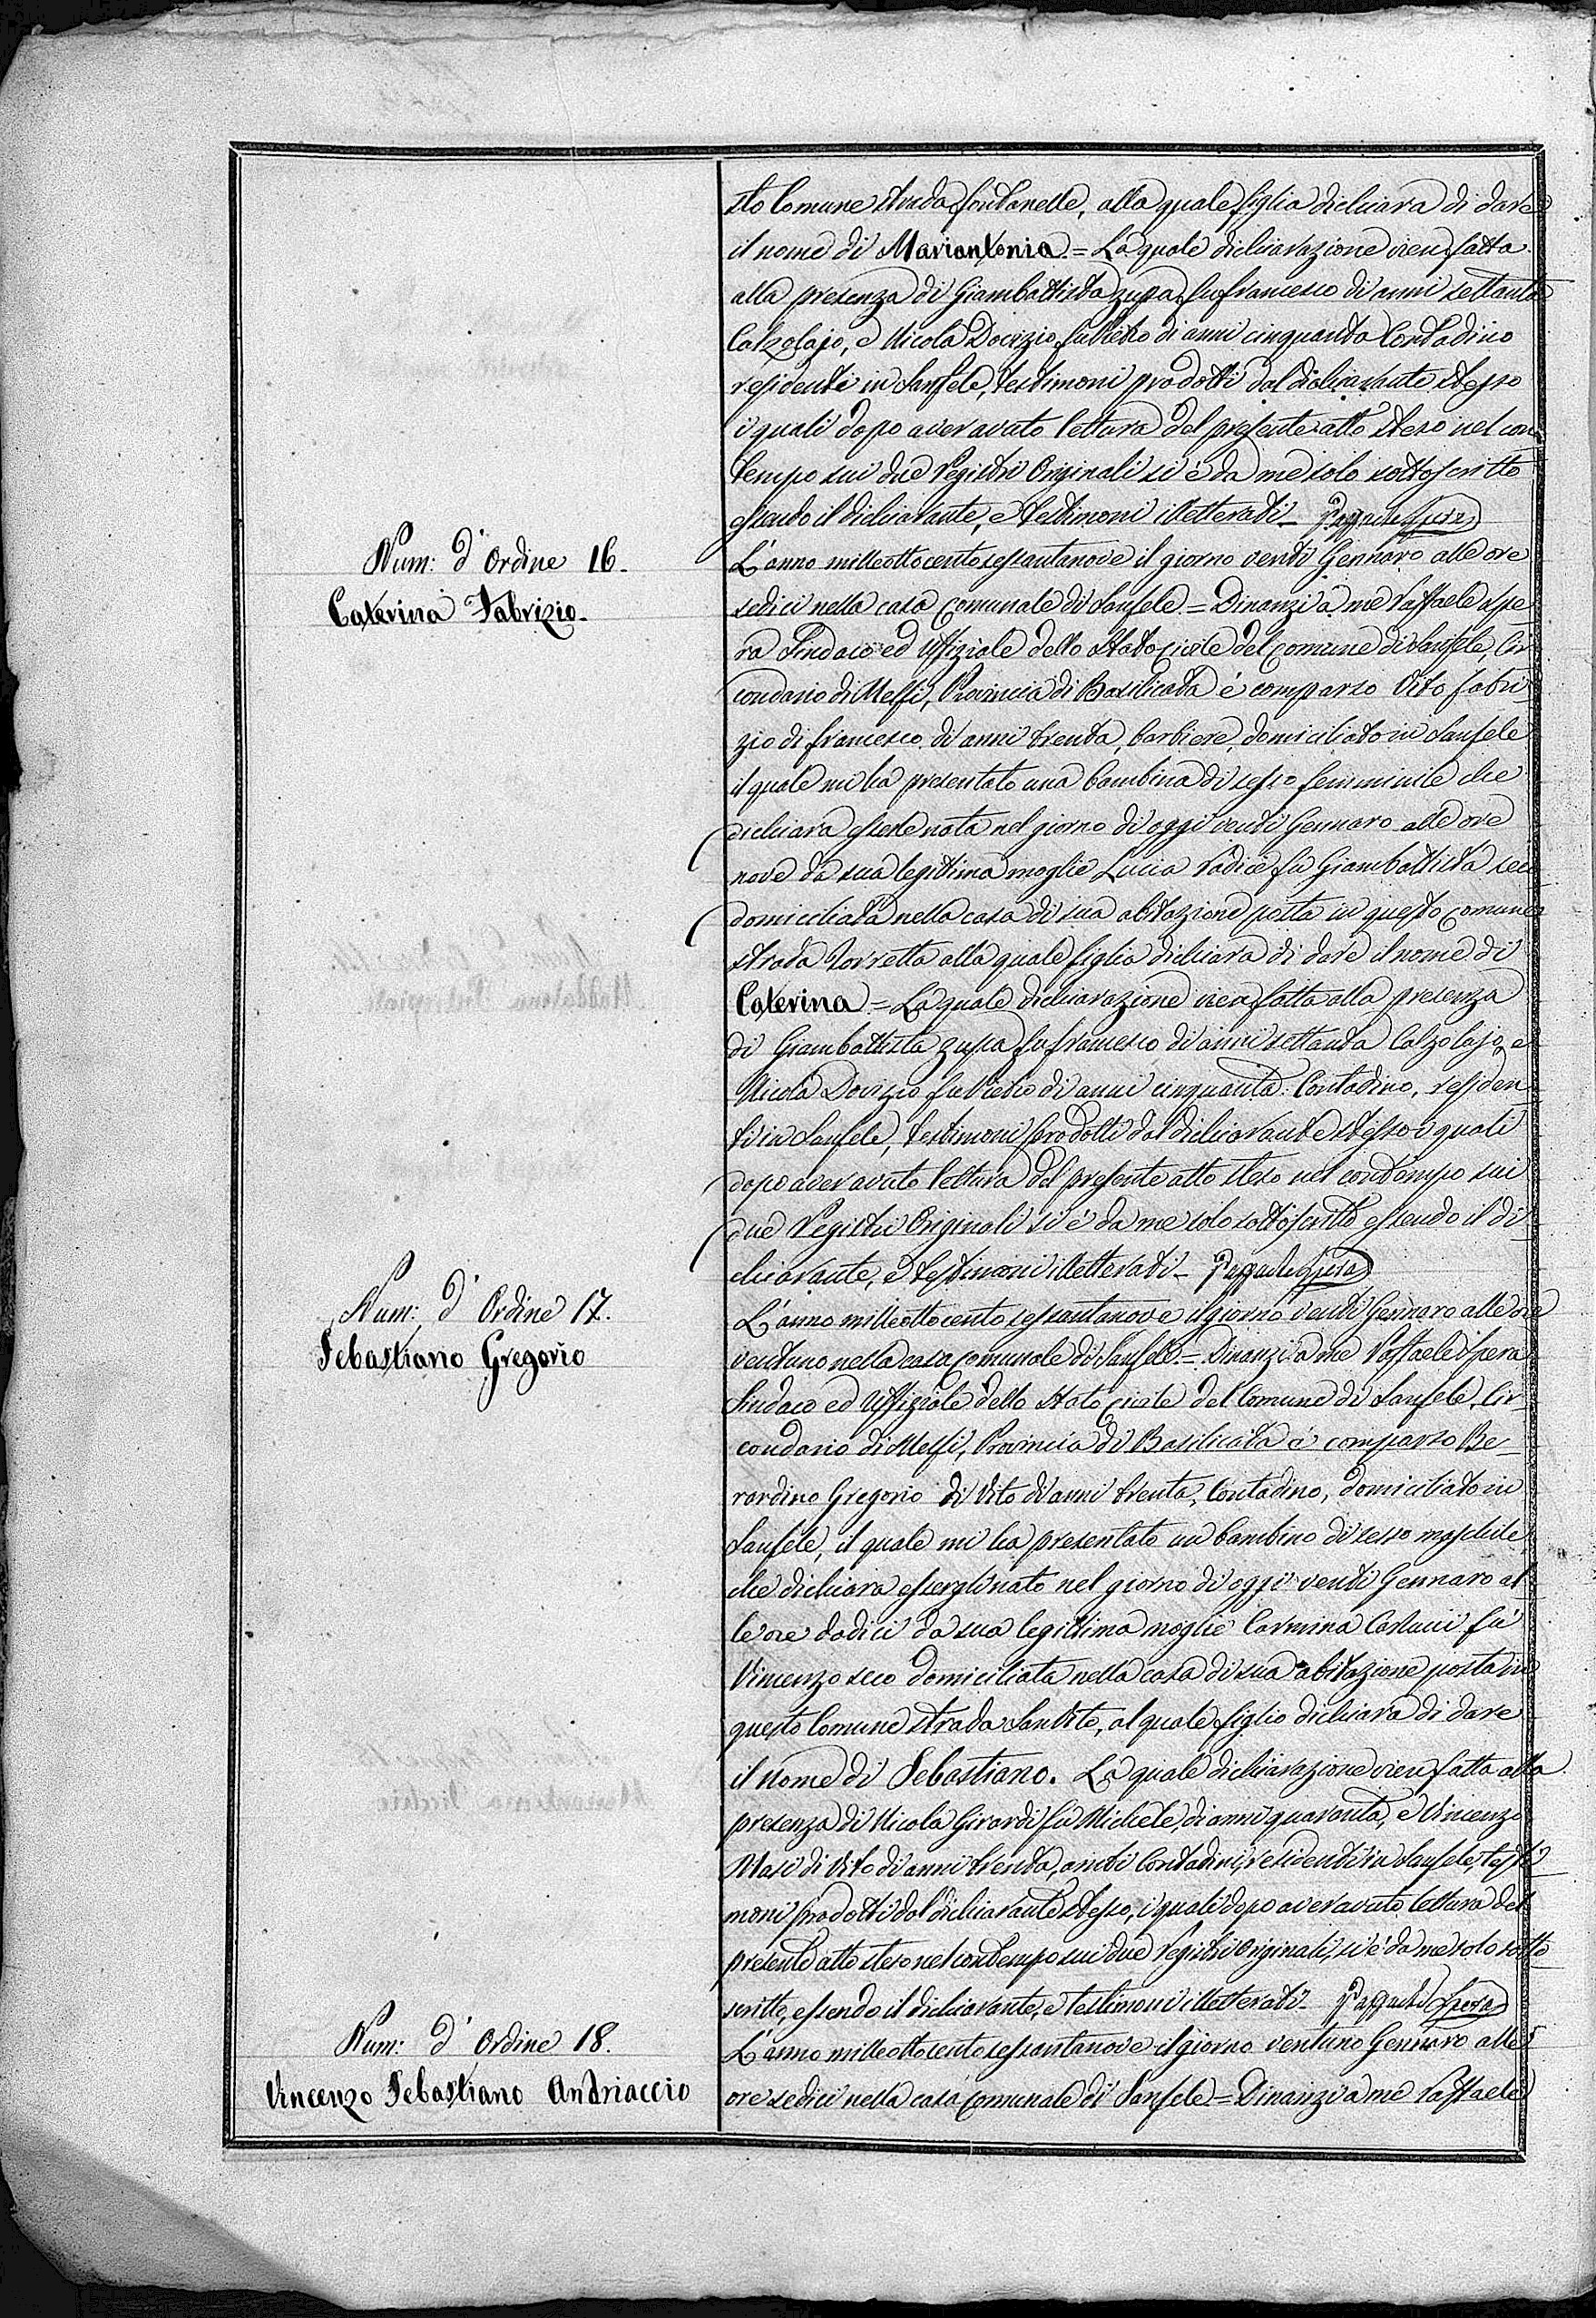 sto Comune strada fontanelle, alla quale figlia dichiara di dare
il nome di Mariantonia = La quale dichiarazione vien fatta
alla presenza di Giambattista Zupa fu francesco di anni settanta
Calzolajo, e Nicola Dovizio fu Pietro di anni cinquanta Contadino
residenti in Sanfele, testimoni prodotti dal dichiarante stesso
i quali dopo aver avuto lettura del presente atto steso nel con
tempo sui due Registri Originali si è da me solo sottoscritto
essendo il dichiarante, e testimoni illetterati_ Raffaele Spera
Num: d' Ordine 16.
Caterina Fabrizio.
L'anno milleottocentosessantanove il giorno venti Gennaro alle ore
sedici nella casa Comunale di Sanfele = Dinanzi a me Raffaele Spe
ra Sindaco ed Uffiziale dello Stato Civile del Comune di Sanfele, Cir
condario di Melfi, Provincia di Basilicata è comparso Vito fabri
zio di francesco di anni trenta, barbiere, domiciliato in Sanfele
il quale mi ha presentato una bambina di sesso femminile che
dichiara esserle nata nel giorno di oggi venti Gennaro alle ore
nove da sua legittima moglie Lucia Radice fu Giambattista seco
domiciliata nella casa di sua abitazione posta in questo Comune
strada Torretta alla quale figlia dichiara di dare il nome di
Caterina = La quale dichiarazione vien fatta alla presenza
di Giambattista Zupa fu francesco di anni settanta Calzolajo, e
Nicola Dovizio fu Pietro di anni cinquanta Contadino, residen
ti in Sanfele, testimoni prodotti dal dichiarante stesso i quali
dopo aver avuto lettura del presente atto steso nel contempo sui
due Registri Originali si è da me solo sottoscritto essendo il di
chiarante, e testimoni illetterati_ Raffaele Spera
Num: d' Ordine 17.
Sebastiano Gregorio
L'anno milleottocentosessantanove il giorno venti Gennaro alle ore
ventuno nella casa Comunale di Sanfele = Dinanzi a me Raffaele Spera
Sindaco ed Uffiziale dello Stato Civile del Comune di Sanfele, Cir
condario di Melfi, Provincia di Basilicata è comparso Be_
rardino Gregorio di Vito di anni trenta, Contadino, domiciliato in
Sanfele, il quale mi ha presentato un bambino di sesso maschile
che dichiara essergli nato nel giorno di oggi venti Gennaro al
le ore dodici da sua legittima moglie Carmina Carlucci fu
Vincenzo seco domiciliata nella casa di sua abitazione posta in
questo Comune strada San Vito, al quale figlio dichiara di dare
il nome di Sebastiano. La quale dichiarazione vien fatta alla
presenza di Nicola Girardi fu Michele, di anni quaranta, e Vincenzo
Masi di Vito di anni trenta, ambi Contadini, residenti in Sanfele, testi
moni prodotti dal dichiarante stesso, i quali dopo aver avuto lettura del
presente atto steso nel contempo sui due Registri Originali, si è da me solo sotto
scritto, essendo il dichiarante, e testimoni illetterati_ Raffaele Spera
Num: d' Ordine 18.
Vincenzo Sebastiano Andriaccio
L'anno milleottocentosessantanove il giorno ventuno Gennaro alle
ore sedici nella casa Comunale di Sanfele = Dinanzi a me Raffaele